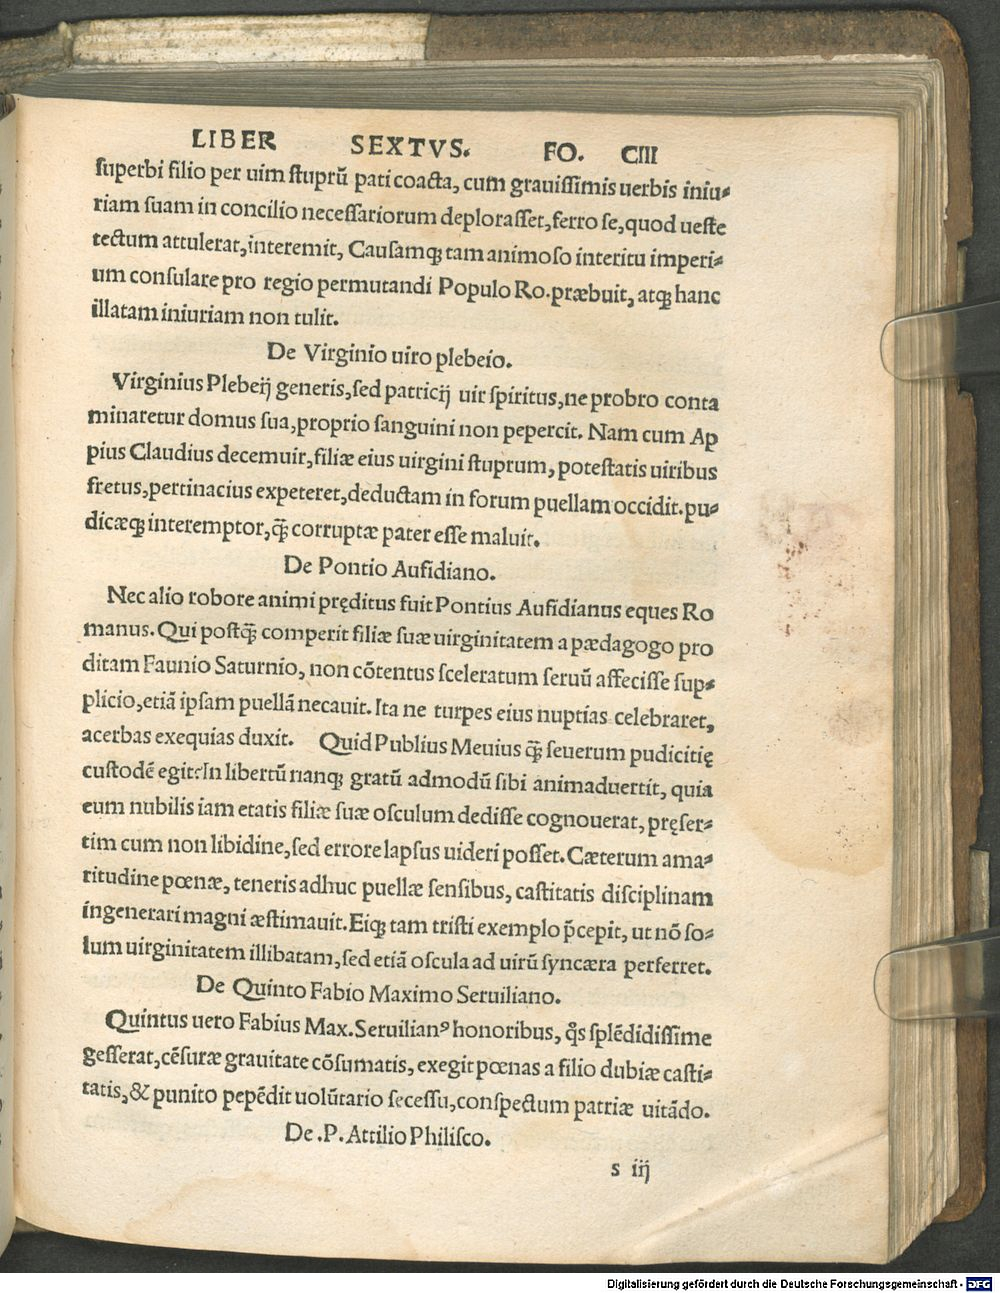 LIBER SEXTVS. FO. CIII
ſuperbi filio per uim ſtuprũ pati coacta, cum grauiſſimis uerbis iniu⸗
riam ſuam in concilio neceſſariorum deploraſſet, ferro ſe, quod ueſte
tectum attulerat, interemit, Cauſamqꝫ tam animoſo interitu imperi⸗
um conſulare pro regio permutandi Populo Ro. præbuit, atqꝫ hanc
illatam iniuriam non tulit.
De Virginio uiro plebeio.
Virginius Plebeij generis, ſed patricij uir ſpiritus, ne probro conta
minaretur domus ſua, proprio ſanguini non pepercit. Nam cum Ap
pius Claudius decemuir, filiæ eius uirgini ſtuprum, poteſtatis uiribus
fretus, pertinacius expeteret, deductam in forum puellam occidit. pu⸗
dicæqꝫ interemptor, q̃ꝫ corruptæ pater eſſe maluit.
De Pontio Aufidiano.
Nec alio robore animi pręditus fuit Pontius Aufidianus eques Ro
manus. Qui poſtq̃ꝫ comperit filiæ ſuæ uirginitatem a pædagogo pro
ditam Faunio Saturnio, non cõtentus ſceleratum ſeruũ affeciſſe ſup⸗
plicio, etiã ipſam puellã necauit. Ita ne turpes eius nuptias celebraret,
acerbas exequias duxit. Quid Publius Meuius q̃ꝫ ſeuerum pudicitię
cuſtodẽ egit: In libertũ nanqꝫ gratũ admodũ ſibi animaduertit, quia
eum nubilis iam etatis filiæ ſuæ oſculum dediſſe cognouerat, pręſer⸗
tim cum non libidine, ſed errore lapſus uideri poſſet. Cæterum ama⸗
ritudine pœnæ, teneris adhuc puellæ ſenſibus, caſtitatis diſciplinam
ingenerari magni æſtimauit. Eiqꝫ tam triſti exemplo p̃cepit, ut nõ ſo⸗
lum uirginitatem illibatam, ſed etiã oſcula ad uirũ ſyncæra perferret.
De Quinto Fabio Maximo Seruiliano.
Quintus uero Fabius Max. Seruilianꝰ honoribus, q̃s ſplẽdidiſſime
geſſerat, cẽſuræ grauitate cõſumatis, exegit pœnas a filio dubiæ caſti⸗
tatis, & punito pepẽdit uolũtario ſeceſſu, conſpectum patriæ uitãdo.
De .P. Attilio Philiſco.
s iij
Digitalisierung gefördert durch die Deutsche Forschungsgemeinschaft - DFG